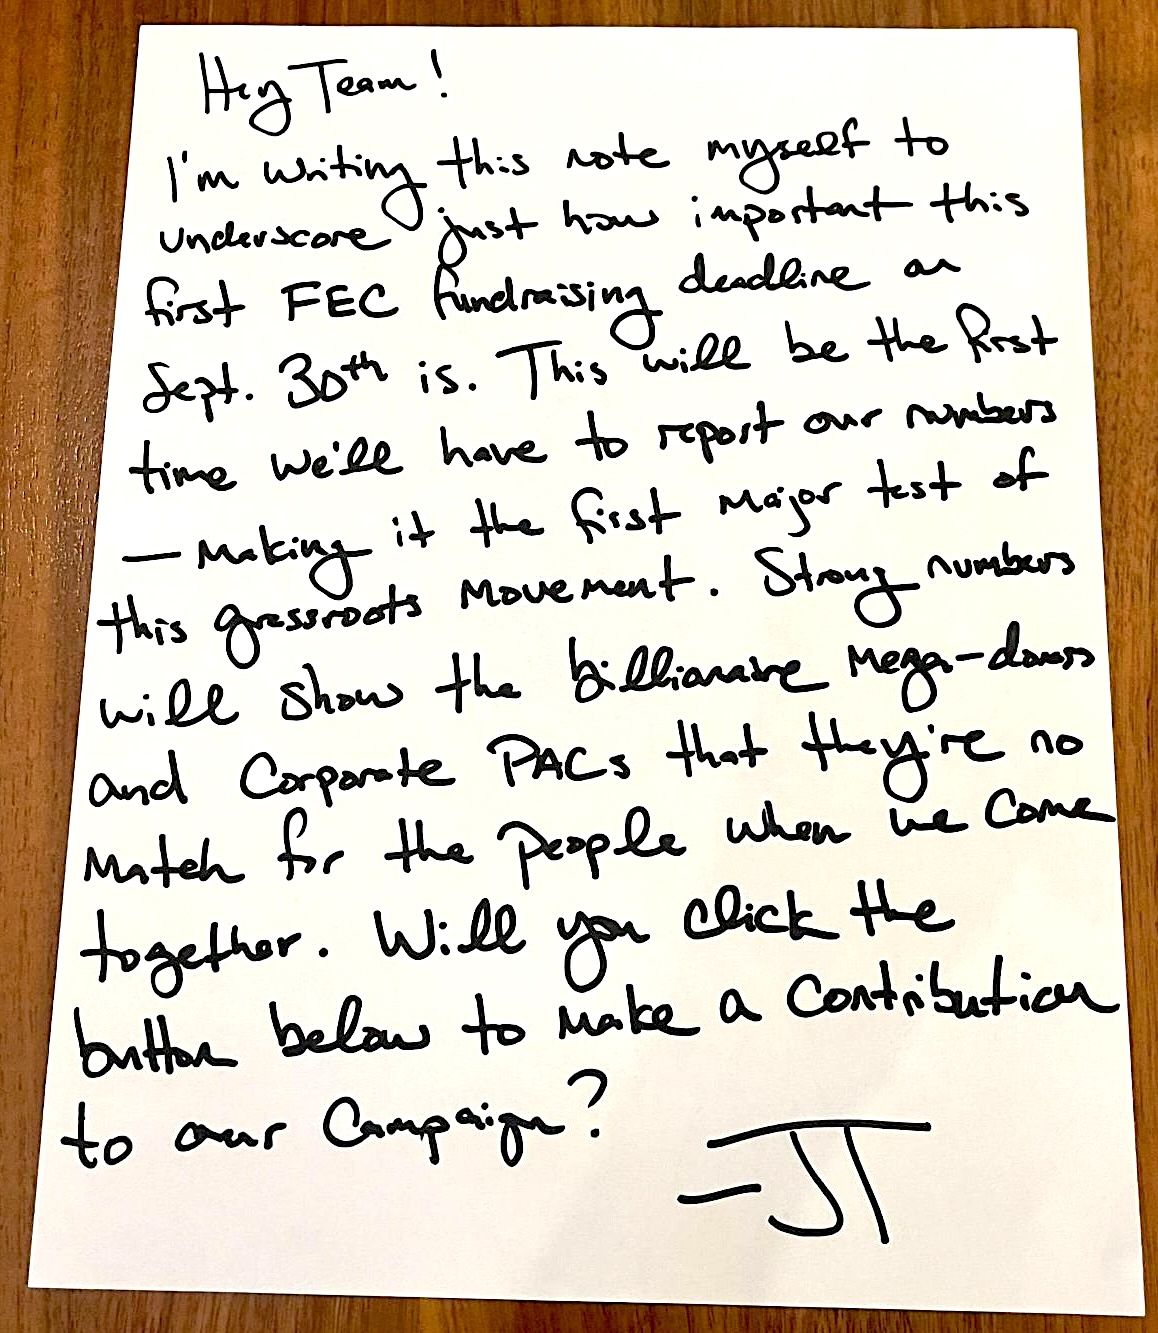 Hey Team!
I'm writing this note myself to
underscore just how important this
first FEC fundraising deadline on
Sept. 30th is. This will be the first
time we'll have to report our numbers
— making it the first major test of
this grassroots movement. Strong numbers
will show the billionaire mega-donors
and Corporate PACs that they're no
match for the people when we come
together. Will you click the
button below to make a contribution
to our campaign?
-JT